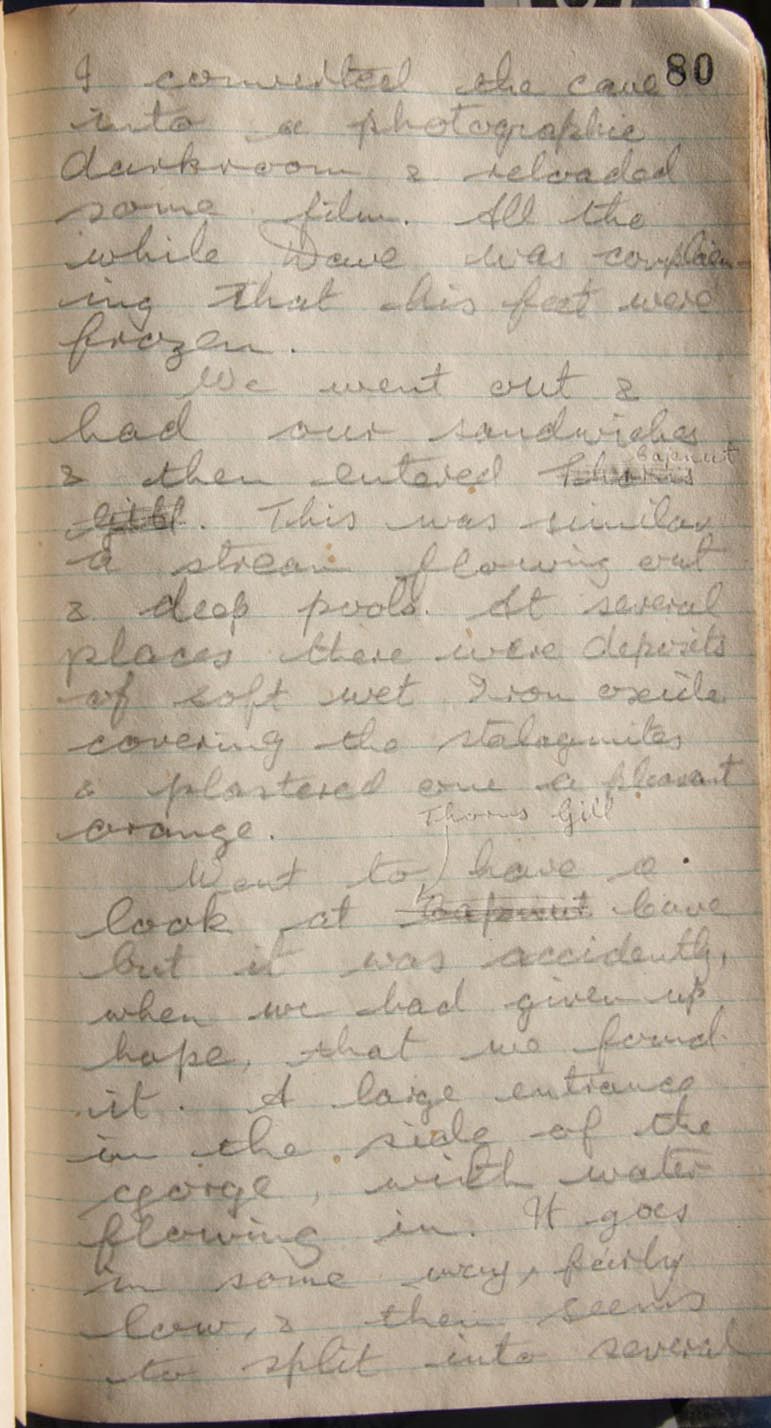 80
I converted the cave
into a photographic
darkroom & reloaded
some film. All the
while Dave was complain-
ing that his feet were
frozen.
We went out &
had our sandwiches
& then entered Thorns Capnut
Gill. This was similar
a stream flowing out
& deep pools. At several
places there were deposits
of soft wet Iron oxide
covering the stalagmites
& plastered one a pleasant
orange.
Thorns Gill
Went to have a
look at Capnut Cave
but it was accidently,
when we had given up
hope, that we found
it. A large entrance
in the side of the
gorge, with water
flowing in. It goes
in some way, fairly
low, & then seems
to split into several